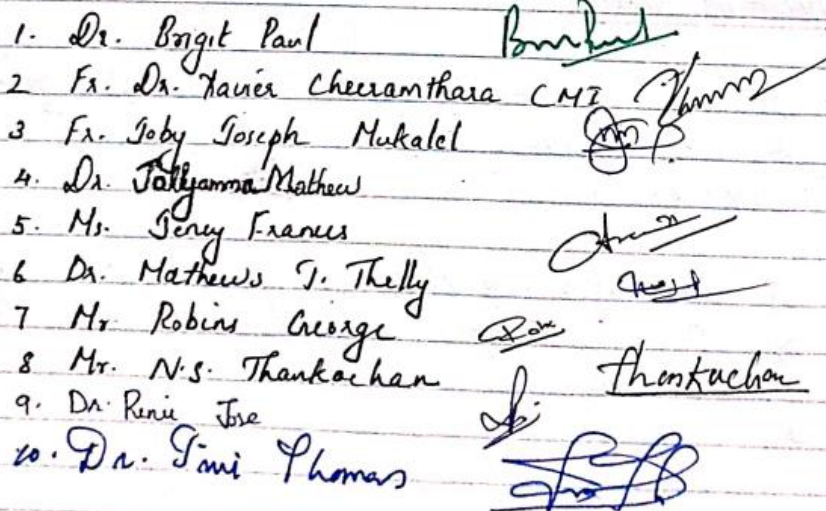 1. Dr. Brigit Paul
2 Fr. Dr. Xavier Cheeramthara CMI
3 Fr. Joby Joseph Mukalel
4. Dr. Jollyamma Mathew
5. Ms. Jency Francis
6 Dr. Mathews T. Thelly
7 Mr Robins George
8 Mr. N.S. Thankachan thankachan
9. Dr. Renie Jose
10. Dr. Timi Thomas